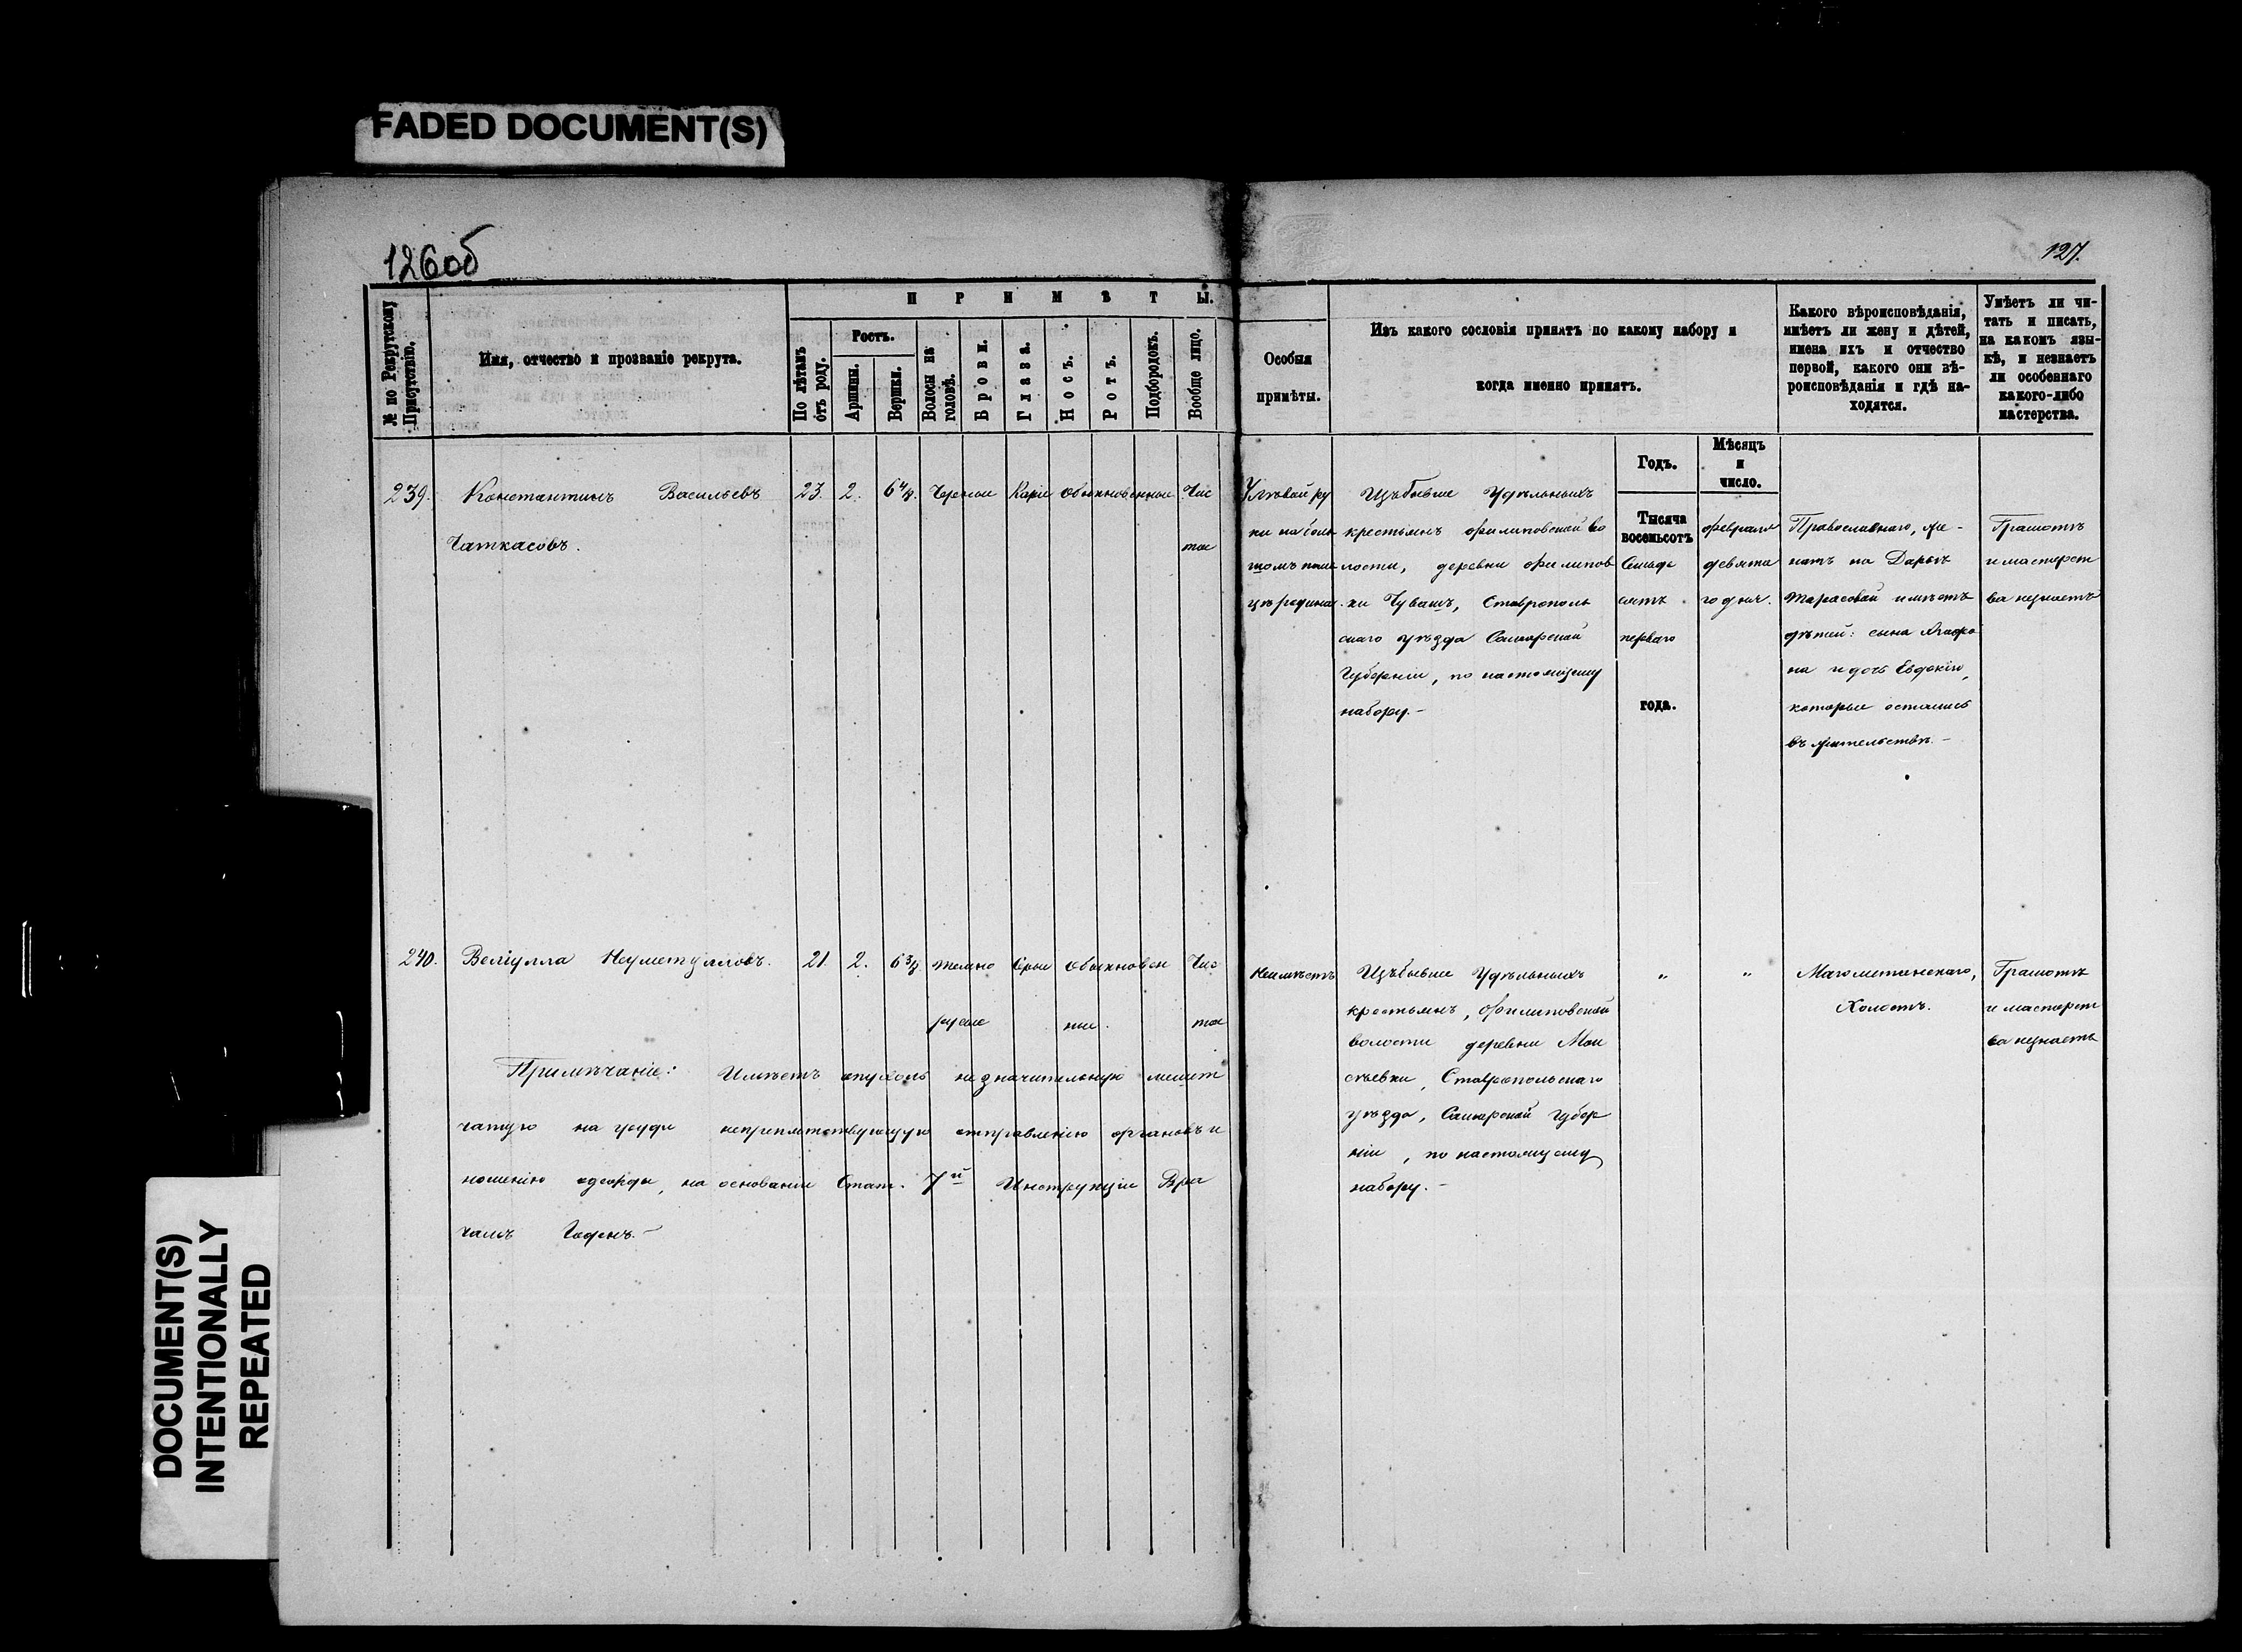 FADED DOCUMENT(S)
126об
127.
№ по Рекрутскому Присутствію.
Имя, отчество и прозваніе рекрута.
ПРИМѢТЫ.
По лѣтамъ отъ роду.
Ростъ.
Аршины.
Вершки.
Волосы на головѣ.
Брови.
Глаза.
Носъ.
Ротъ.
Подбородокъ.
Вообще лицо.
Особыя
примѣты.
Изъ какого сословія принятъ по какому набору и
когда именно принятъ.
Годъ.
Мѣсяцъ
и
число.
Какого вѣроисповѣданія,
имѣетъ ли жену и дѣтей,
имена ихъ и отчество
первой, какого они вѣ-
роисповѣданія и гдѣ на-
ходятся.
Умѣетъ ли чи-
тать и писать,
на какомъ язы-
кѣ, и незнаетъ
ли особеннаго
какого-либо
мастерства.
239.
Константинъ Васильевъ
Чаткасовъ.
23. 2. 6 4/8. Черные Каріе обыкновенные Чис
тое
У лѣвой ру
ки на боль
шомъ паль
цѣ родинка
Изъ бывше Удѣльныхъ
крестьянъ Филиповской во
лости, деревни Филипов
ки Чувашъ, Ставрополь
скаго уѣзда Самарской
Губерніи, по настоящему
набору.-
Тысяча
восемьсотъ
Семьде
сятъ
перваго
года.
февраля
девята
го дня.
Православнаго, же-
натъ на Дарьѣ
Тарасовой имѣетъ
дѣтей: сына Агафо
на и дочь Евдокію,
которые остались
въ жительствѣ.-
Грамотѣ
и мастерст
ва незнаетъ
240.
Веліулла Неуметулловъ.
21. 2. 6 3/8 темно Сѣрые обыкновен Чис
русые ные. тое
Неимѣетъ
Изъ бывше Удѣльныхъ
крестьянъ, Филиповской
волости деревни Мои
сѣевки, Ставропольскаго
уѣзда, Самарской губер
ніи, по настоящему
набору.-
"
"
Магометанскаго,
Холостъ.
Грамотѣ
и мастерст
ва незнаетъ
Примѣчаніе: Имѣетъ опухоль незначительную мешет
чатую на груди непрепятствующую отправленію органовъ и
ношенію одежды, на основаніи Стат. 7й Инструкціи Вра
чамъ Годенъ.-
DOCUMENT(S)
INTENTIONALLY
REPEATED